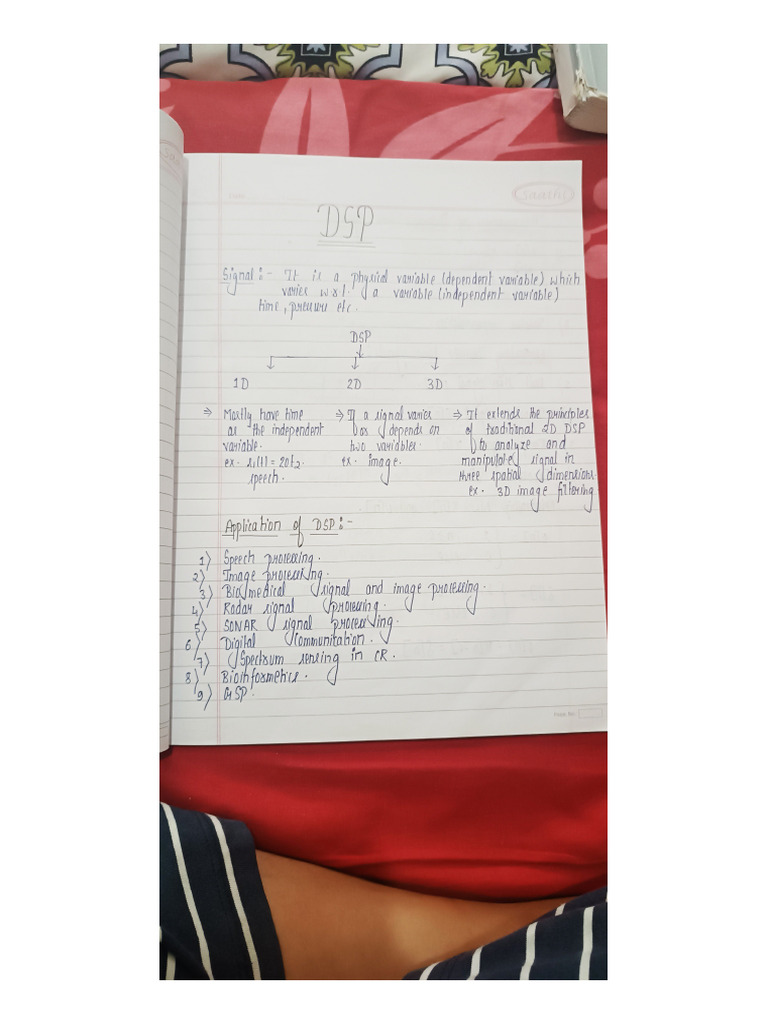 saathi
DSP
Signal :- It is a physical variable (dependent variable) which
varies w.r.t. a variable (independent variable)
time, pressure etc.
DSP
1D 2D 3D
⇒ Mostly have time
as the independent
variable.
ex. s₁(t) = 20t₂
speech.
⇒ If a signal varies
or depends on
two variables.
ex. image.
⇒ It extends the principles
of traditional 2D DSP
to analyze and
manipulate signal in
three spatial dimensions.
ex. 3D image filtering
Application of DSP :-
1) Speech processing.
2) Image processing.
3) Biomedical signal and image processing.
4) Radar signal processing.
5) SONAR signal processing.
6) Digital Communication.
7) Spectrum sensing in CR.
8) Bioinformetics.
9) GSP.
Page No.